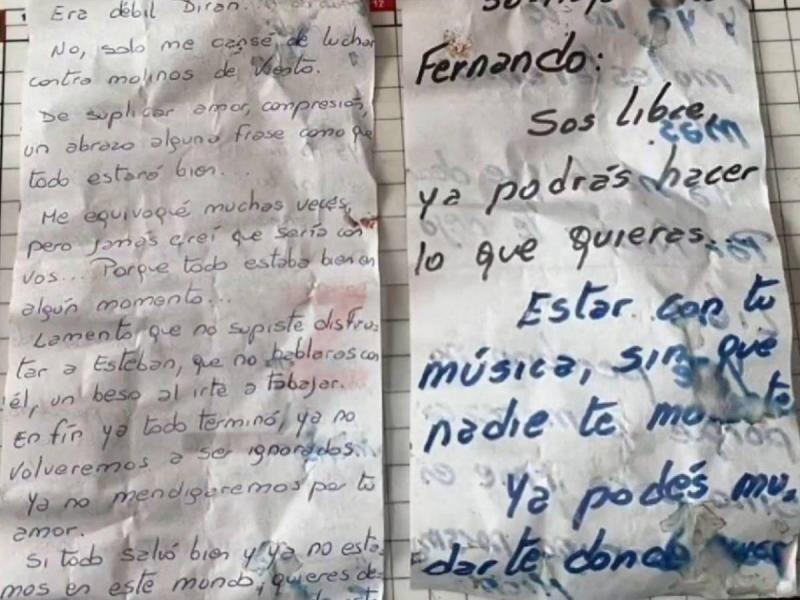 Era débil Diran.
No, solo me cansé de luchar
contra molinos de viento.
De suplicar amor, compresión,
un abrazo alguna frase como que
todo estará bien...
Me equivoqué muchas veces,
pero jamás creí que sería con
vos... Porque todo estaba bien en
algún momento...
Lamento, que no supiste disfru-
tar a Esteban, que no hablaras con
él, un beso al irte a tabajar.
En fín ya todo terminó, ya no
volveremos a ser ignorados.
Ya no mendigaremos por tu
amor.
Si todo salvó bien y ya no esta-
mos en este mundo, quieres de-
12
Fernando:
Sos libre,
ya podrás hacer
lo que quieras...
Estar con tu
música, sin que
nadie te
Ya podés mu-
darte donde